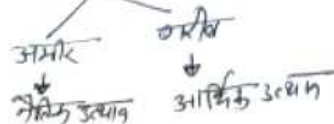 अमीर गरीब
नैतिक उत्थान आर्थिक उत्थान